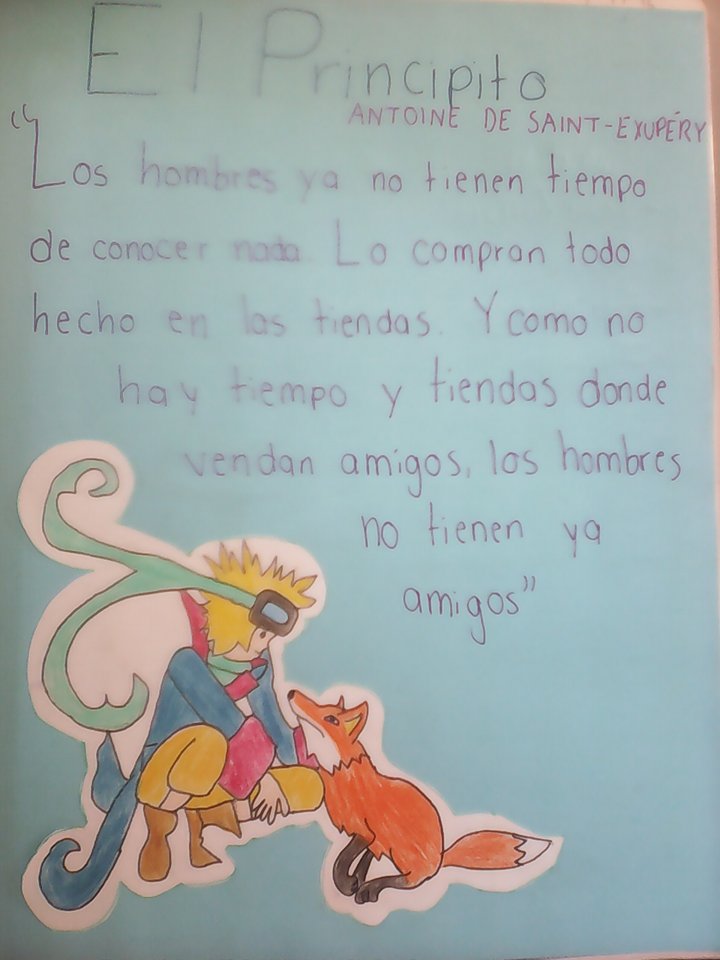 El Principito
ANTOINE DE SAINT-EXUPÉRY
"Los hombres ya no tienen tiempo
de conocer nada. Lo compran todo
hecho en las tiendas. Y como no
hay tiempo y tiendas donde
vendan amigos, los hombres
no tienen ya
amigos"